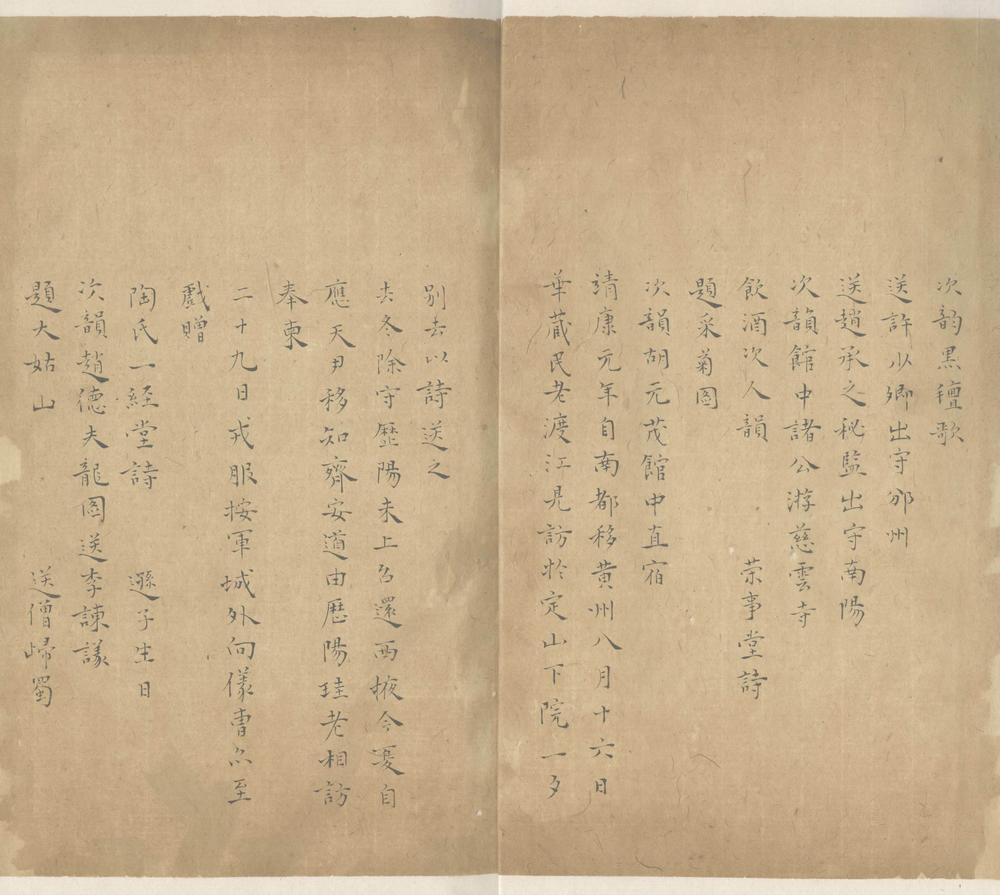 次韵黒穜歌
送許少卿出守邠州
送趙承之秘監出守南陽
次韻館中諸公游慈雲寺
飲酒次人韻 荣事堂詩
題采菊圖
次韻胡元茂館中直宿
靖康元年自南都移黄州八月十六日
華蔵民老渡江見訪扵定山下院一夕
別去以詩送之
去冬除守歴陽未上召還西掖今夏自
應天尹移知齊安道由歴陽珪老相訪
奉柬
二十九日戎服按軍城外向儀曹亦至
戲贈
陶氏一経堂詩 遜子生日
次韻趙德夫龍圖送李諫議
題大姑山 送僧歸蜀